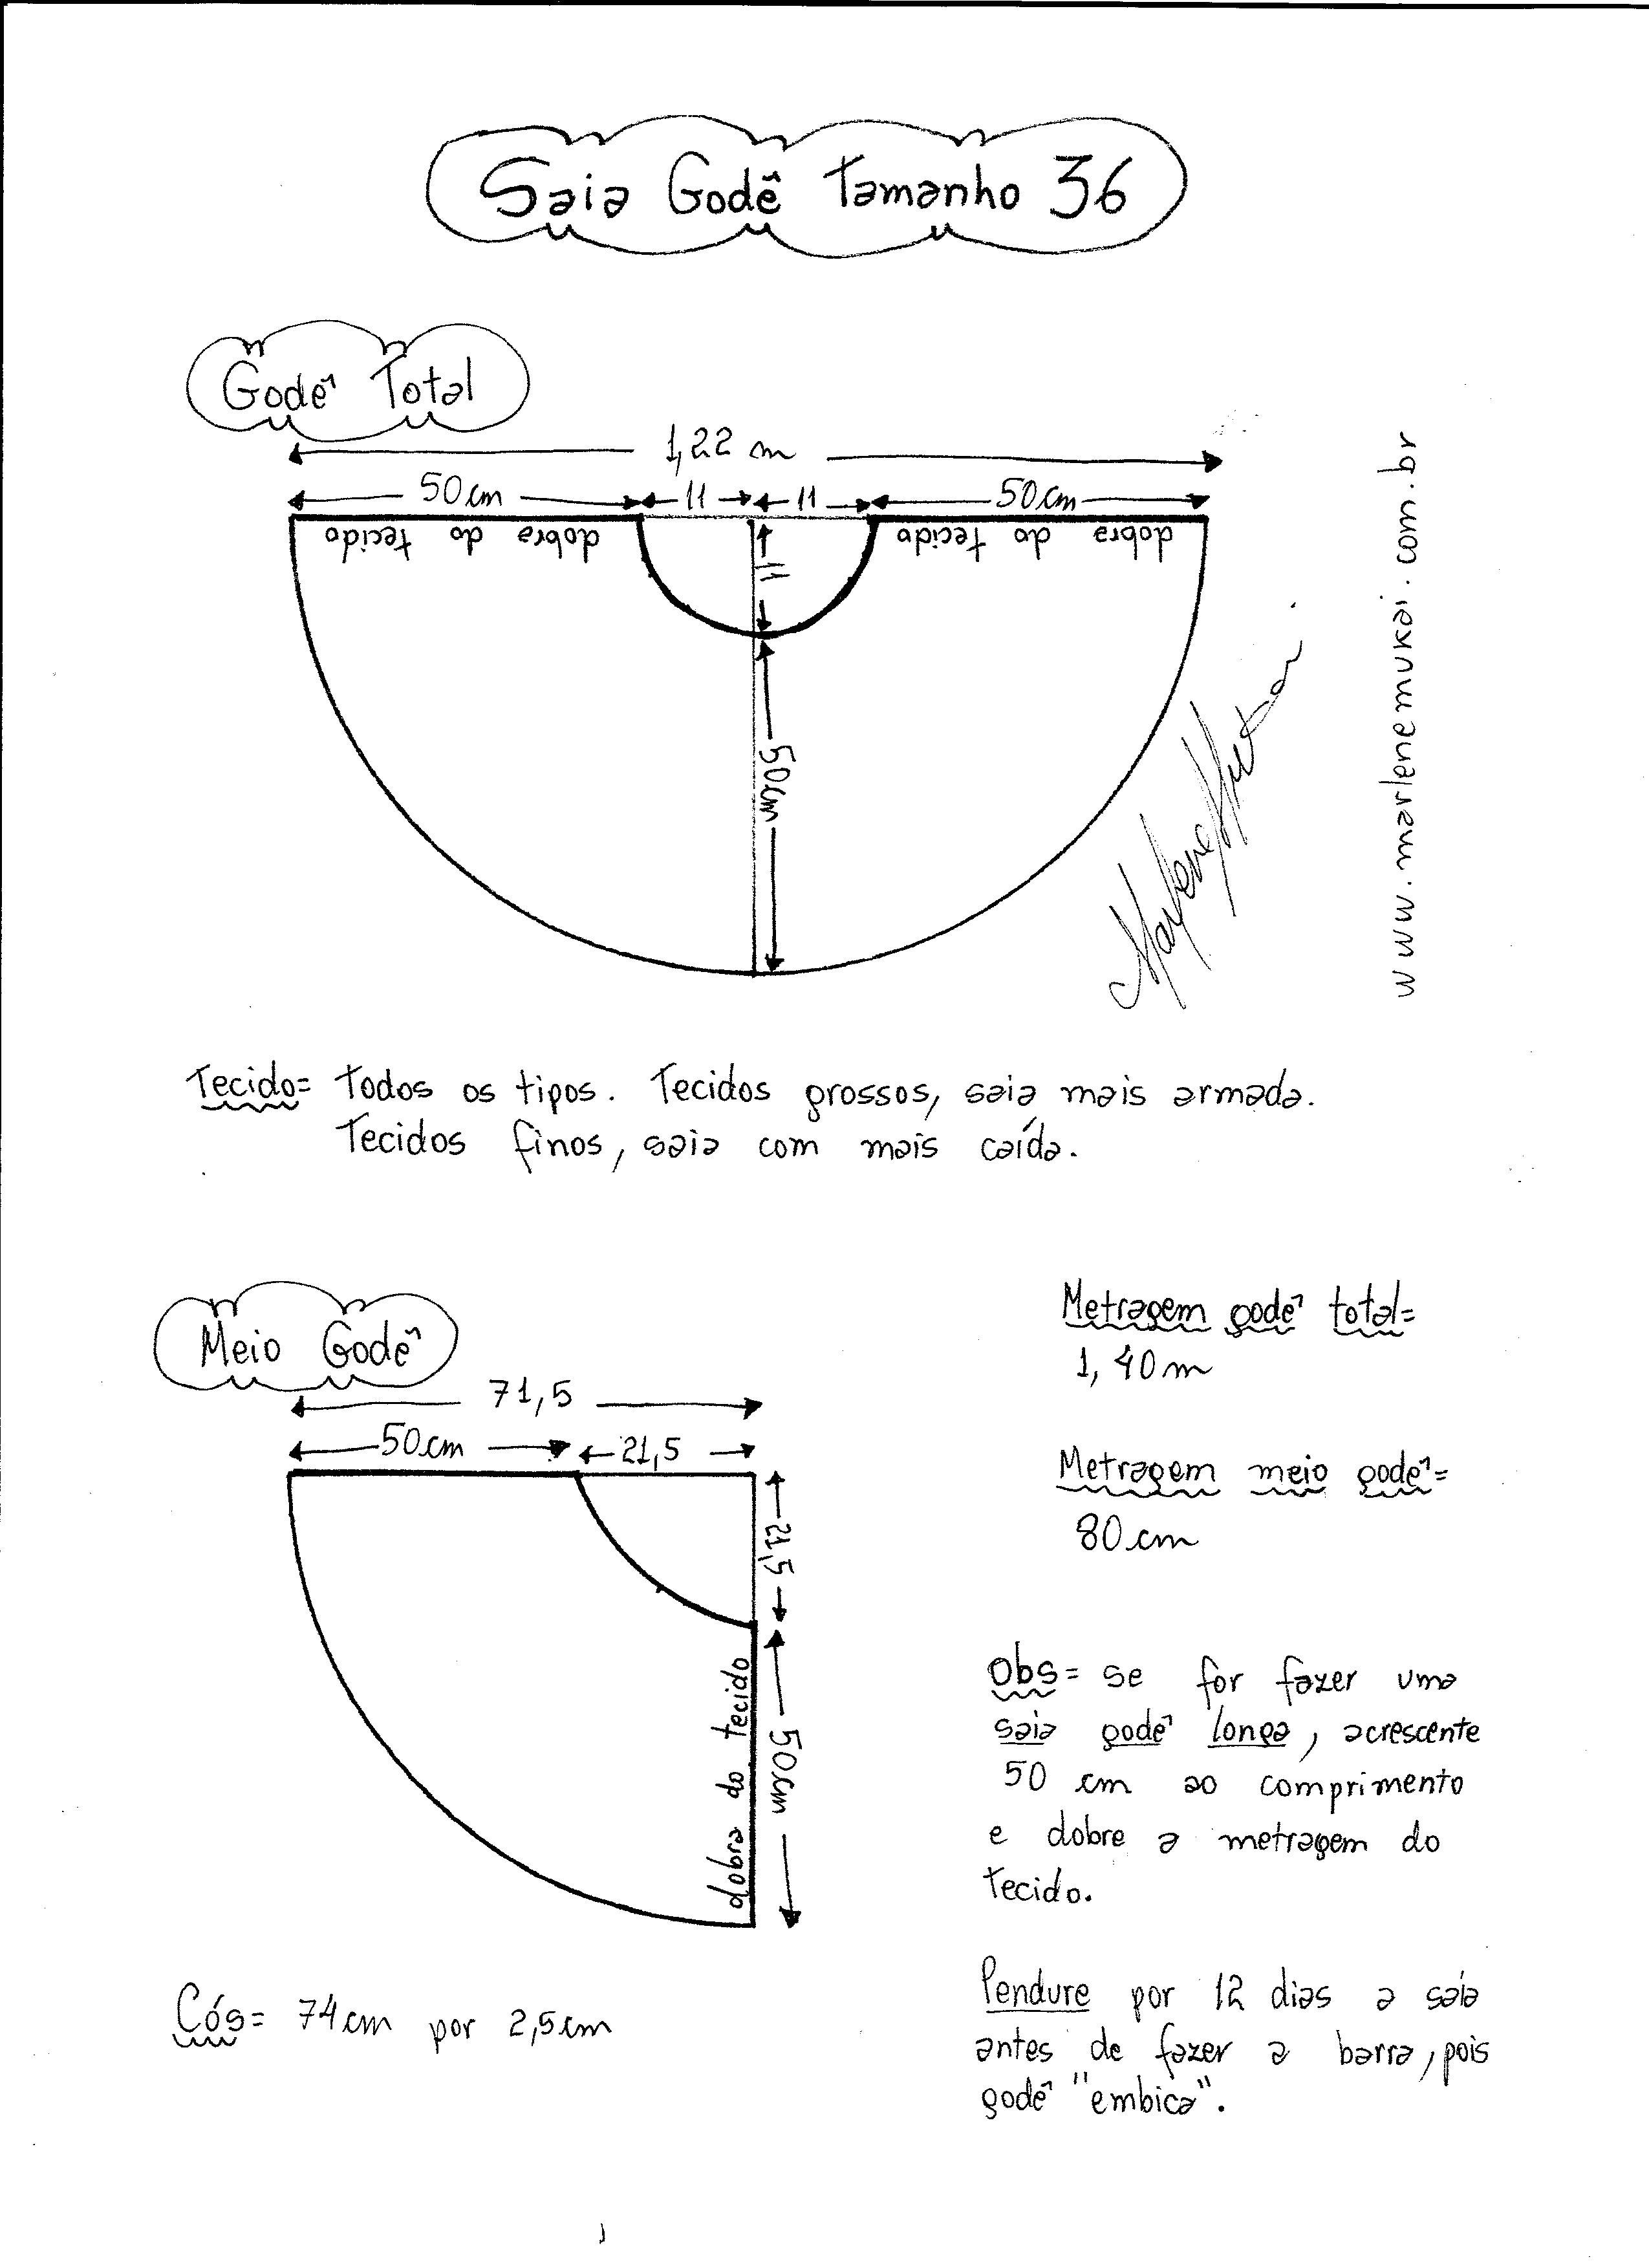 Saia Godê Tamanho 36
Godê Total
1,22 m
50cm 11 11 50cm
dobra do tecido dobra do tecido
11
50cm
Marlene Mukai
www.marlenemukai.com.br
Tecido= Todos os tipos. Tecidos grossos, saia mais armada.
Tecidos finos, saia com mais caída.
Meio Godê
71,5
50cm 21,5
21,5
50cm
dobra do tecido
Metragem godê total=
1,40m
Metragem meio godê=
80cm
Obs= se for fazer uma
saia godê longa, acrescente
50 cm ao comprimento
e dobre a metragem do
tecido.
Cós= 74cm por 2,5cm
Pendure por 12 dias a saia
antes de fazer a barra, pois
godê "embica".